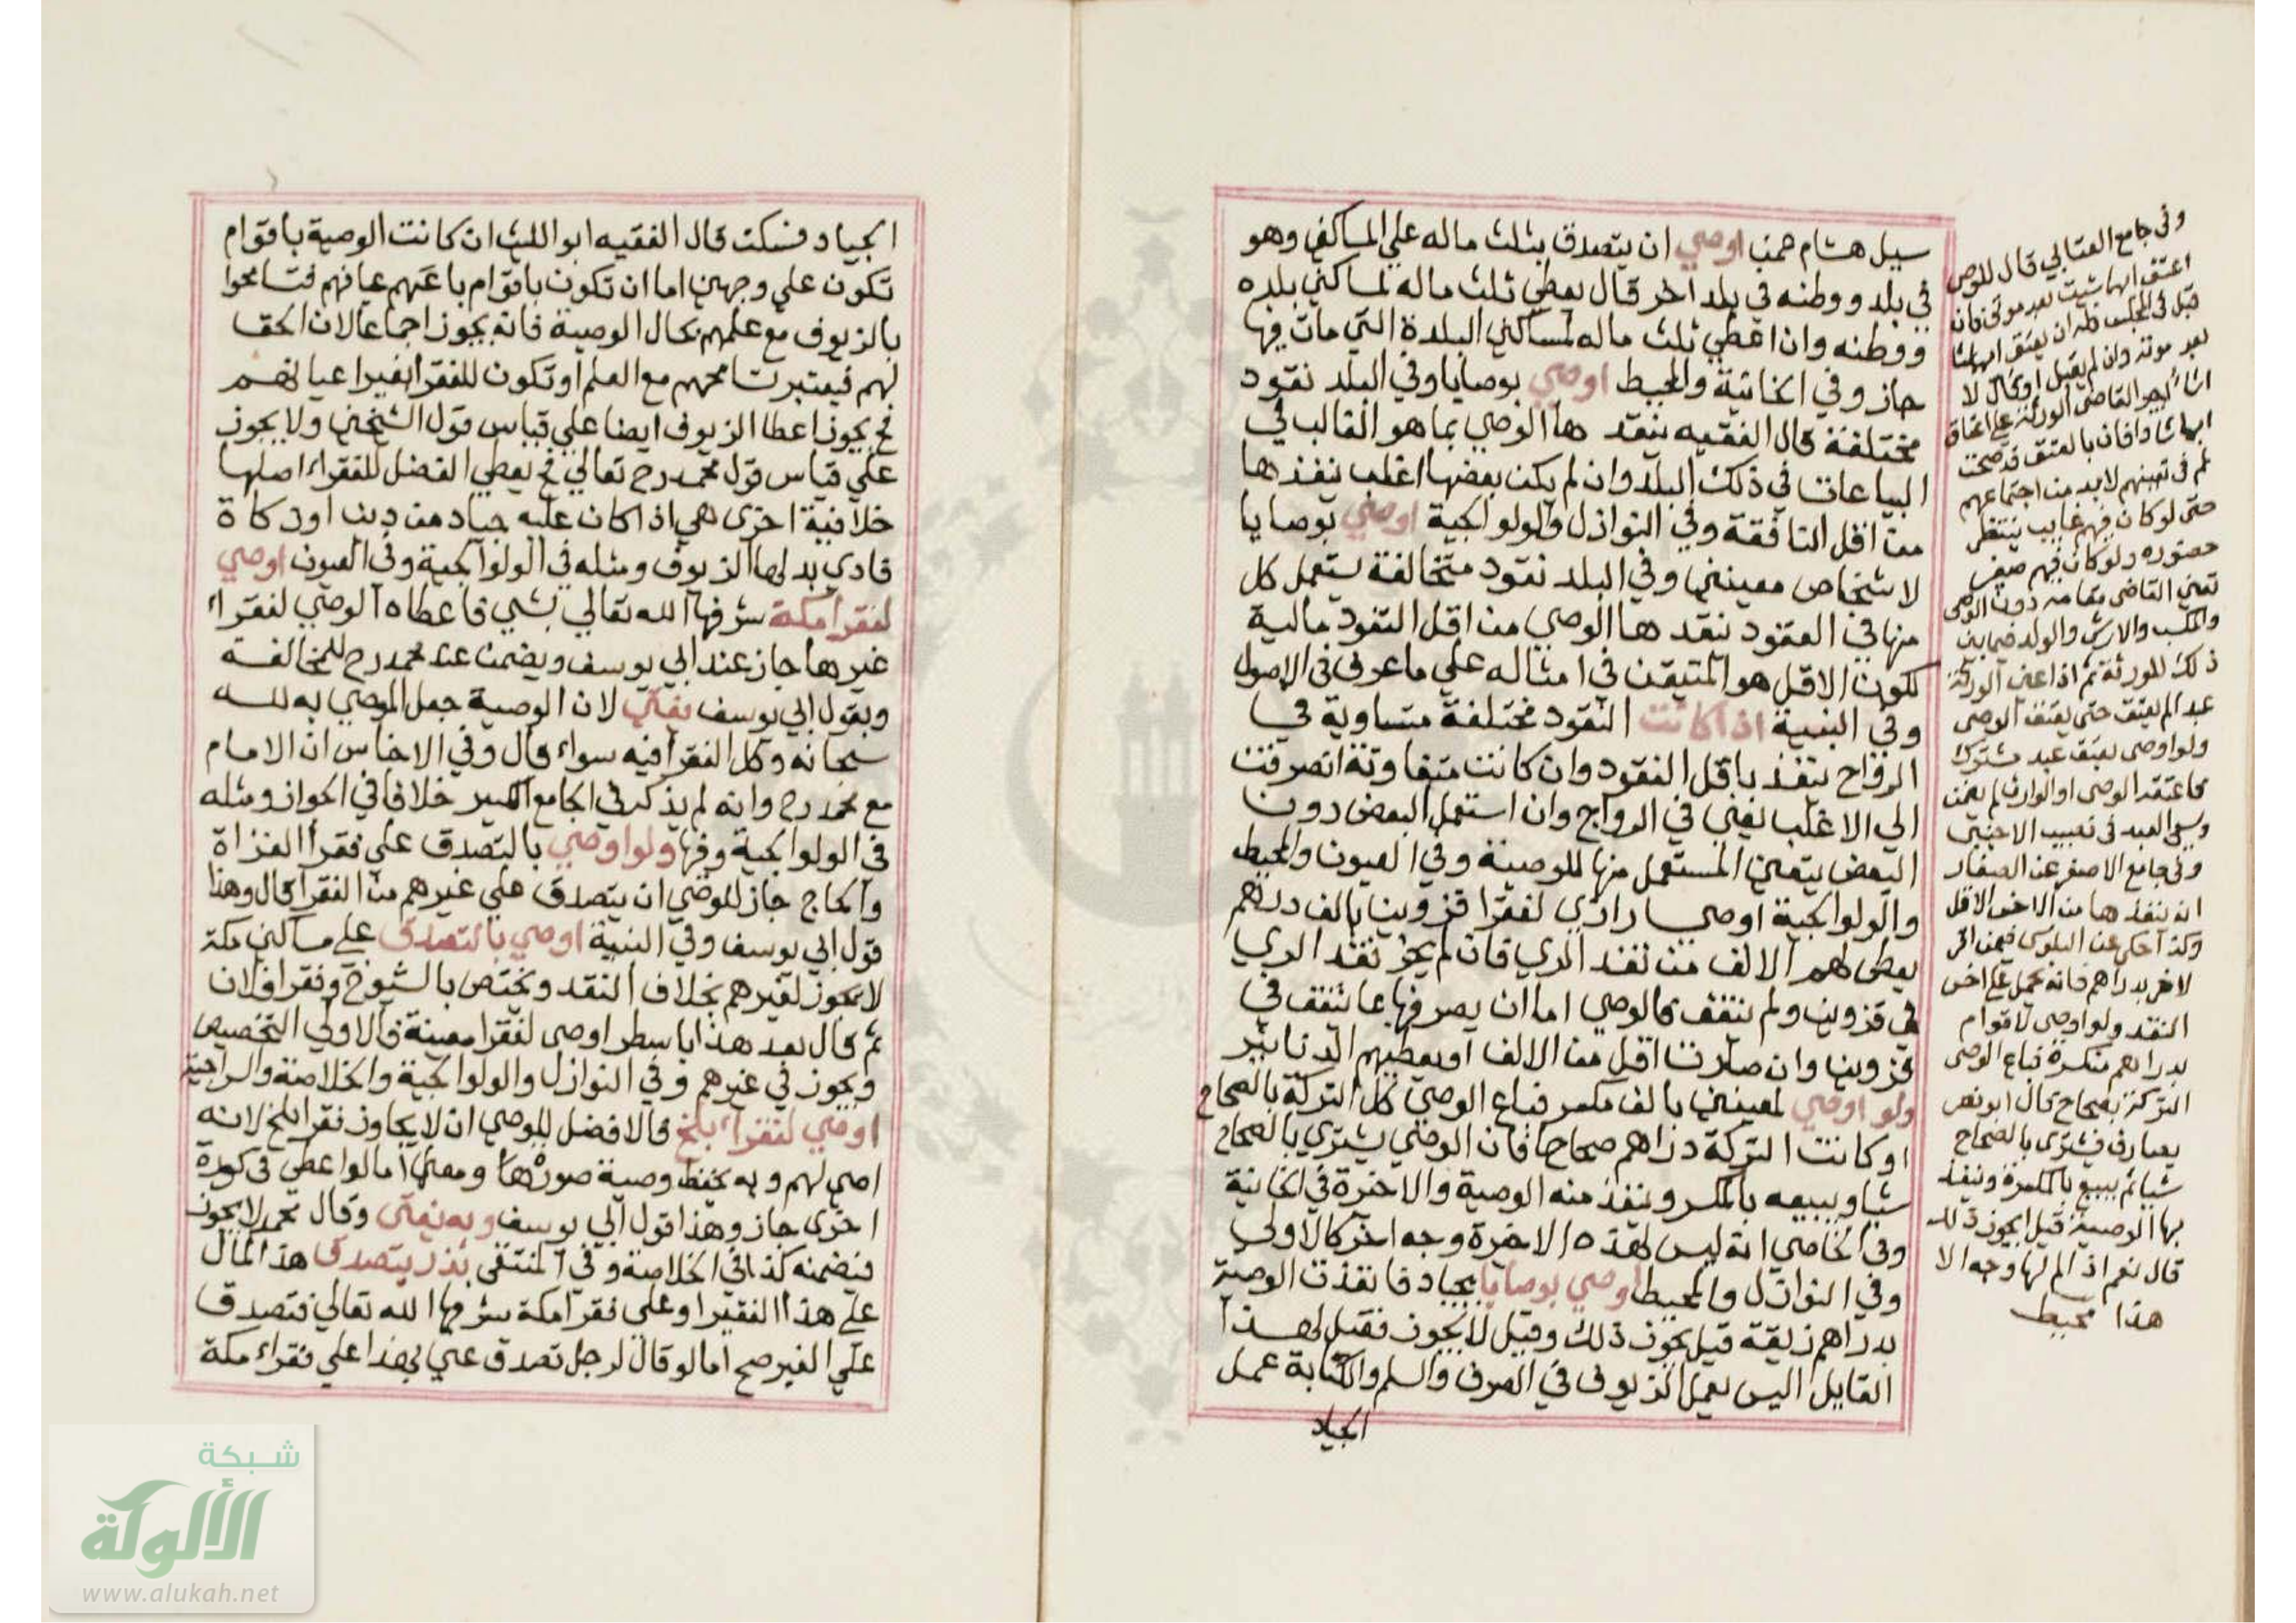 سيل هشام عمن اوصي ان يتصدق بثلث ماله علي المساكين وهو
في بلد ووطنه في بلد اخر قال يعطي ثلث ماله لمساكين بلده
ووطنه وان اعطي ثلث ماله لمساكين البلدة التي مات فيها
جاز وفي الخانية والمحيط اوصي بوصايا وفي البلد نقود
مختلفة قال الفقيه ينقد ها الوصي بما هو الغالب في
البياعات في ذلك البلد وان لم يكن بعضها اغلب ينفذها
من اقل النافقة وفي النوازل والولوالجية اوصي بوصايا
لاشخاص معينين وفي البلد نقود متخالفة يستعمل كل
منها في العقود نقد ها الوصي من اقل النقود مالية
لكون الاقل هو المتيقن في امثاله علي ما عرف في الاصول
وفي البنية اذا كانت النقود مختلفة متساوية في
الرواج ينفذ باقل النقود وان كانت متفاوتة انصرفت
الي الاغلب يعني في الرواج وان استعمل البعض دون
البعض يتعين المستعمل منها للوصية وفي العيون والمحيط
والولوالجية اوصي رازي لفقرا قزوين بالف درهم
يعطى لهم الالف من نقد الري فان لم يجز نقد الري
في قزوين ولم ينفق فالوصي اما ان يصرفها بما ينفق في
قزوين وان صارت اقل من الالف او يعطيهم الدنانير
ولو اوصي لمعينين بالف مكسر فباع الوصي كل التركة بالصحاح
او كانت التركة دراهم صحاحا فان الوصي يشتري بالصحاح
شيا ويبيعه بالمكسر وينفذ منه الوصية والاخيرة في الخانية
وفي الخاصي انه ليس لهذه الاخيرة وجه اخر كالاولي
وفي النوازل والمحيط اوصي بوصايا بجياد فانفذت الوصية
بدراهم زيفة قيل يجوز ذلك وقيل لا يجوز فقيل لهذا
القايل اليس يعمل الزيوف في الصرف والسلم والكتابة عمل
الجياد
وفى جامع العتابي قال للوصى
اعتق ايها شيت بعد موتى فان
قبل في المجلس فله ان يعتق ايهما شا
بعد موته وان لم يقبل او قال لا
اشا يجبر القاضى الورثة على اعتاق
حتى لو كان فيهم غايب ينتظر
حضوره ولو كان فيهم صغير
والكسب والارش والولد فيما بين
ذلك للورثة ثم اذا عين الورثة
عبد الم يعتق حتى يعتق الوصى
ولو اوصى بعتق عبد مشترك
وفى جامع الاصغر عن الصفار
انه ينفذ ها من الاخس الاقل
لاخر بدراهم فانه يحمل على اخس
النقد ولو اوصى لاقوام
بدراهم منكسرة فباع الوصى
التركة بصحاح قال ابو نصر
يصارف فيشترى بالصحاح
شيا ثم يبيع بالمكسرة وينفذ
بها الوصية قيل ايجوز ذلك
قال نعم اذ الم لها وجه الا
هذا محيط
الجياد فسكت قال الفقيه ابو الليث ان كانت الوصية باقوام
تكون علي وجهين اما ان تكون باقوام باعيانهم فتسامحوا
بالزيوف مع علمهم بحال الوصية فانه يجوز اجماعا لان الحق
لهم فيعتبر تسامحهم مع العلم او تكون للفقرا بغير اعيانهم
فح يجوز اعطا الزيوف ايضا علي قياس قول الشيخين ولا يجوز
علي قياس قول محمد رح تعالي فح يعطي الفضل للفقراء اصلها
خلافية اخرى هي اذا كان عليه جياد من دين او زكاة
فادي بدلها الزيوف ومثله في الولوالجية وفي العيون اوصي
لفقرا مكة شرفها الله تعالي بشي فاعطاه الوصي لفقراء
غيرها جاز عند ابي يوسف ويضمن عند محمد رح للمخالفة
وبقول ابي يوسف يفتي لان الوصية جعل الموصي به لله
سبحانه وكل الفقرا فيه سواء قال وفي الاجناس ان الامام
مع محمد رح وانه لم يذكر في الجامع الكبير خلافا في الجواز ومثله
في الولوالجية وفيها ولو اوصي بالتصدق علي فقرا الغزاة
والحاج جاز للوصي ان يتصدق علي غيرهم من الفقرا قال وهذا
قول ابي يوسف وفي البنية اوصي بالتصدق على مساكين مكة
لا يجوز لغيرهم بخلاف النقد ويختص بالشيوخ وفقرا فلان
ثم قال بعد هذا باسطر اوصى لفقرا معينة فالاولي التخصيص
ويجوز في غيرهم وفي النوازل والولوالجية والخلاصة والسراجية
اوصي لفقراء بلخ فالافضل للوصي ان لا يجاوز فقرا بلخ لانه
اصي لهم وبه يحفظ وصية صورة ومعنا اما لو اعطي في كورة
اخرى جاز وهذا قول ابي يوسف وبه يفتى وقال محمد لا يجوز
فيضمنه كذا في الخلاصة وفي المنتقى نذر يتصدق هذا المال
على هذا الفقير او على فقرا مكة شرفها الله تعالي فتصدق
علي الغير صح اما لو قال لرجل تصدق عني بهذا علي فقراء مكة
شبكة
الألوكة
www.alukah.net